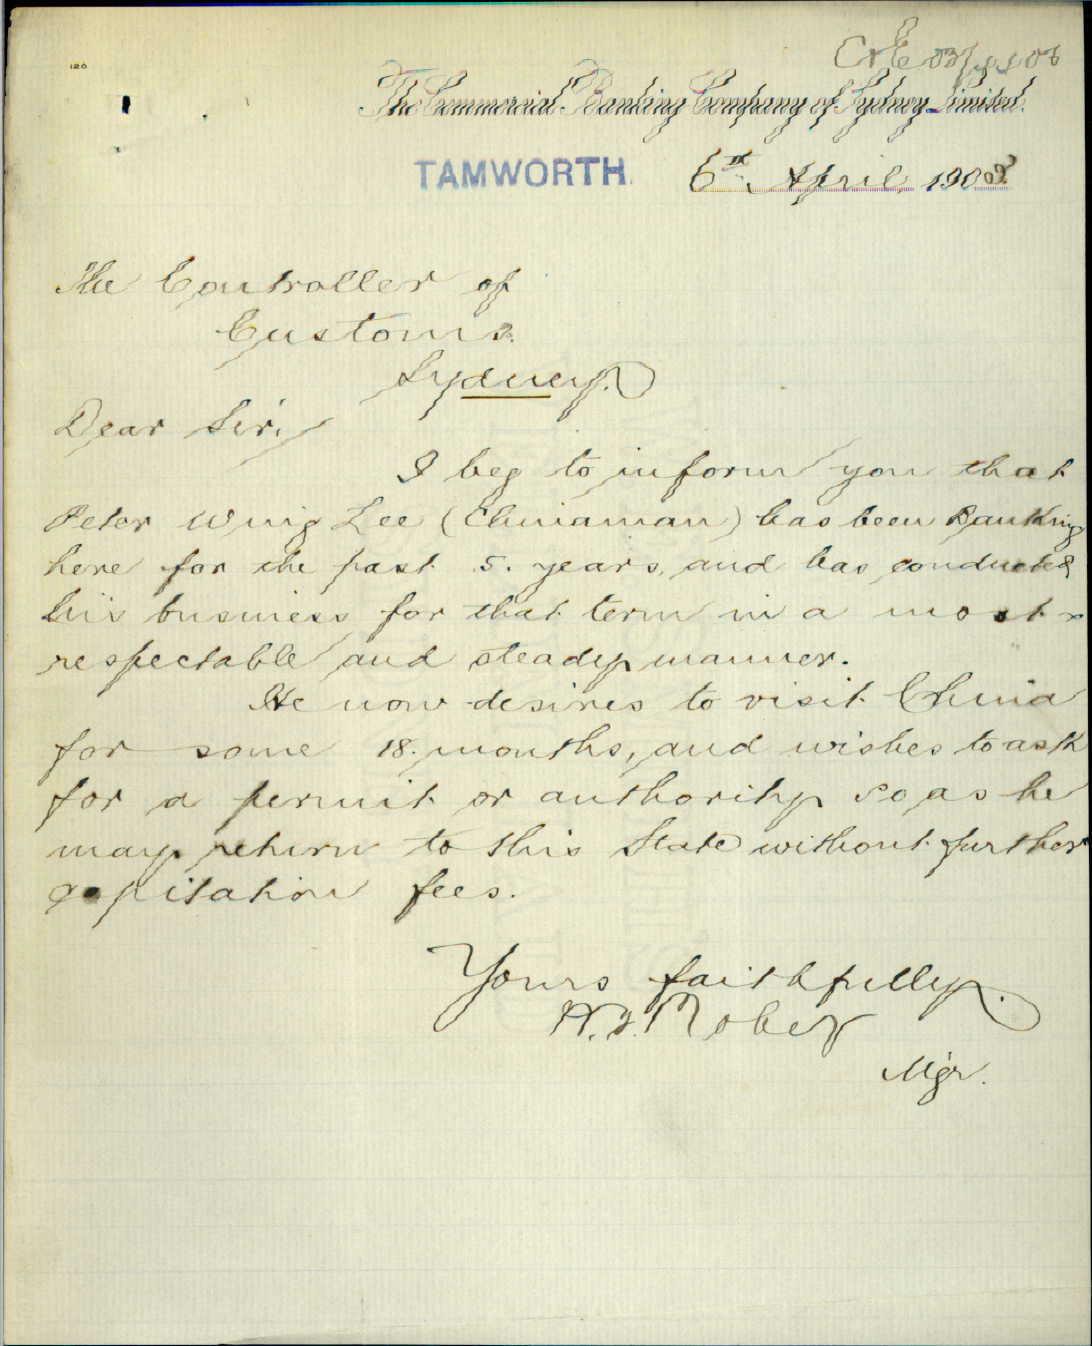 126
C & E 03/
The Commercial Banking Company of Sydney Limited.
TAMWORTH. 6th. April. 1903.
The Controller of
Customs.
Sydney.
Dear Sir,
I beg to inform you that
Peter Wing Lee (Chinaman) has been Banking
here for the past 5. years, and has conducted
his business for that term in a most
respectable and steady manner.
He now desires to visit China
for some 18. months, and wishes to ask
for a permit or authority so as he
may return to this State without further
capitation fees.
Yours faithfully.
Mgr.